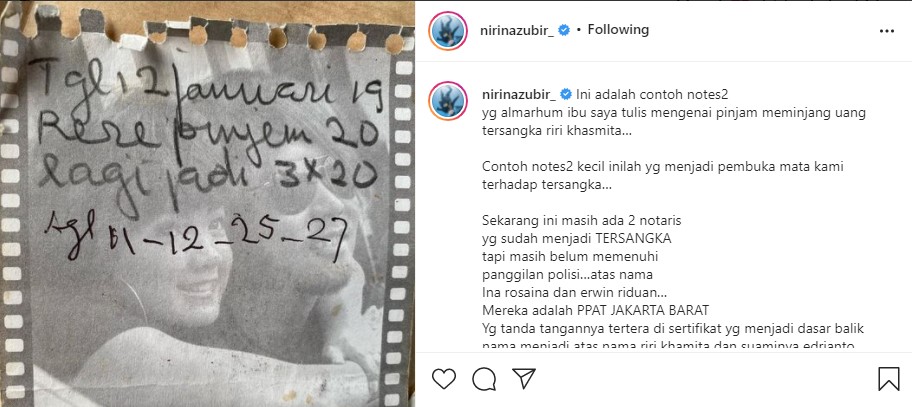 Tgl 12 januari 19
Rere pinyem 20
lagi jadi 3x20
tgl 11-12-25-27
nirinazubir_ • Following
nirinazubir_ Ini adalah contoh notes2
yg almarhum ibu saya tulis mengenai pinjam meminjang uang
tersangka riri khasmita...
Contoh notes2 kecil inilah yg menjadi pembuka mata kami
terhadap tersangka...
Sekarang ini masih ada 2 notaris
yg sudah menjadi TERSANGKA
tapi masih belum memenuhi
panggilan polisi...atas nama
Ina rosaina dan erwin riduan...
Mereka adalah PPAT JAKARTA BARAT
Yg tanda tangannya tertera di sertifikat yg menjadi dasar balik
nama menjadi atas nama riri khamita dan suaminya edrianto